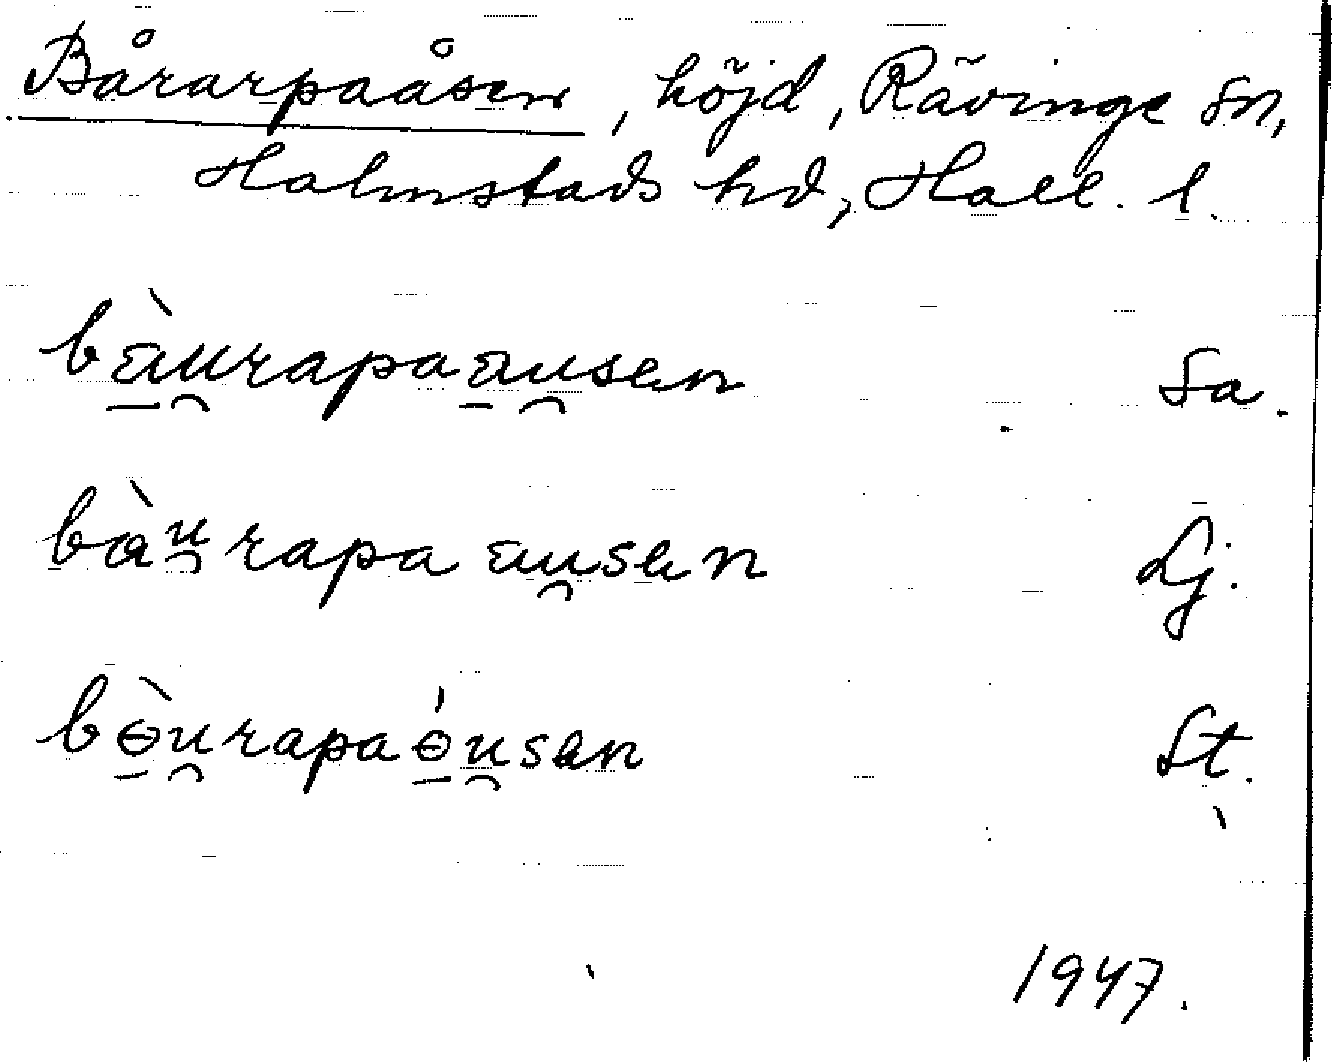 Bårarpaåsen, höjd, Rävinge sn,
Halmstads hd, Hall. l.
bàu̯rapaau̯sen Sa.
bàu̯rapaau̯sen Lj.
bɵ̀u̯rapaɵ́u̯sen St.
1947.